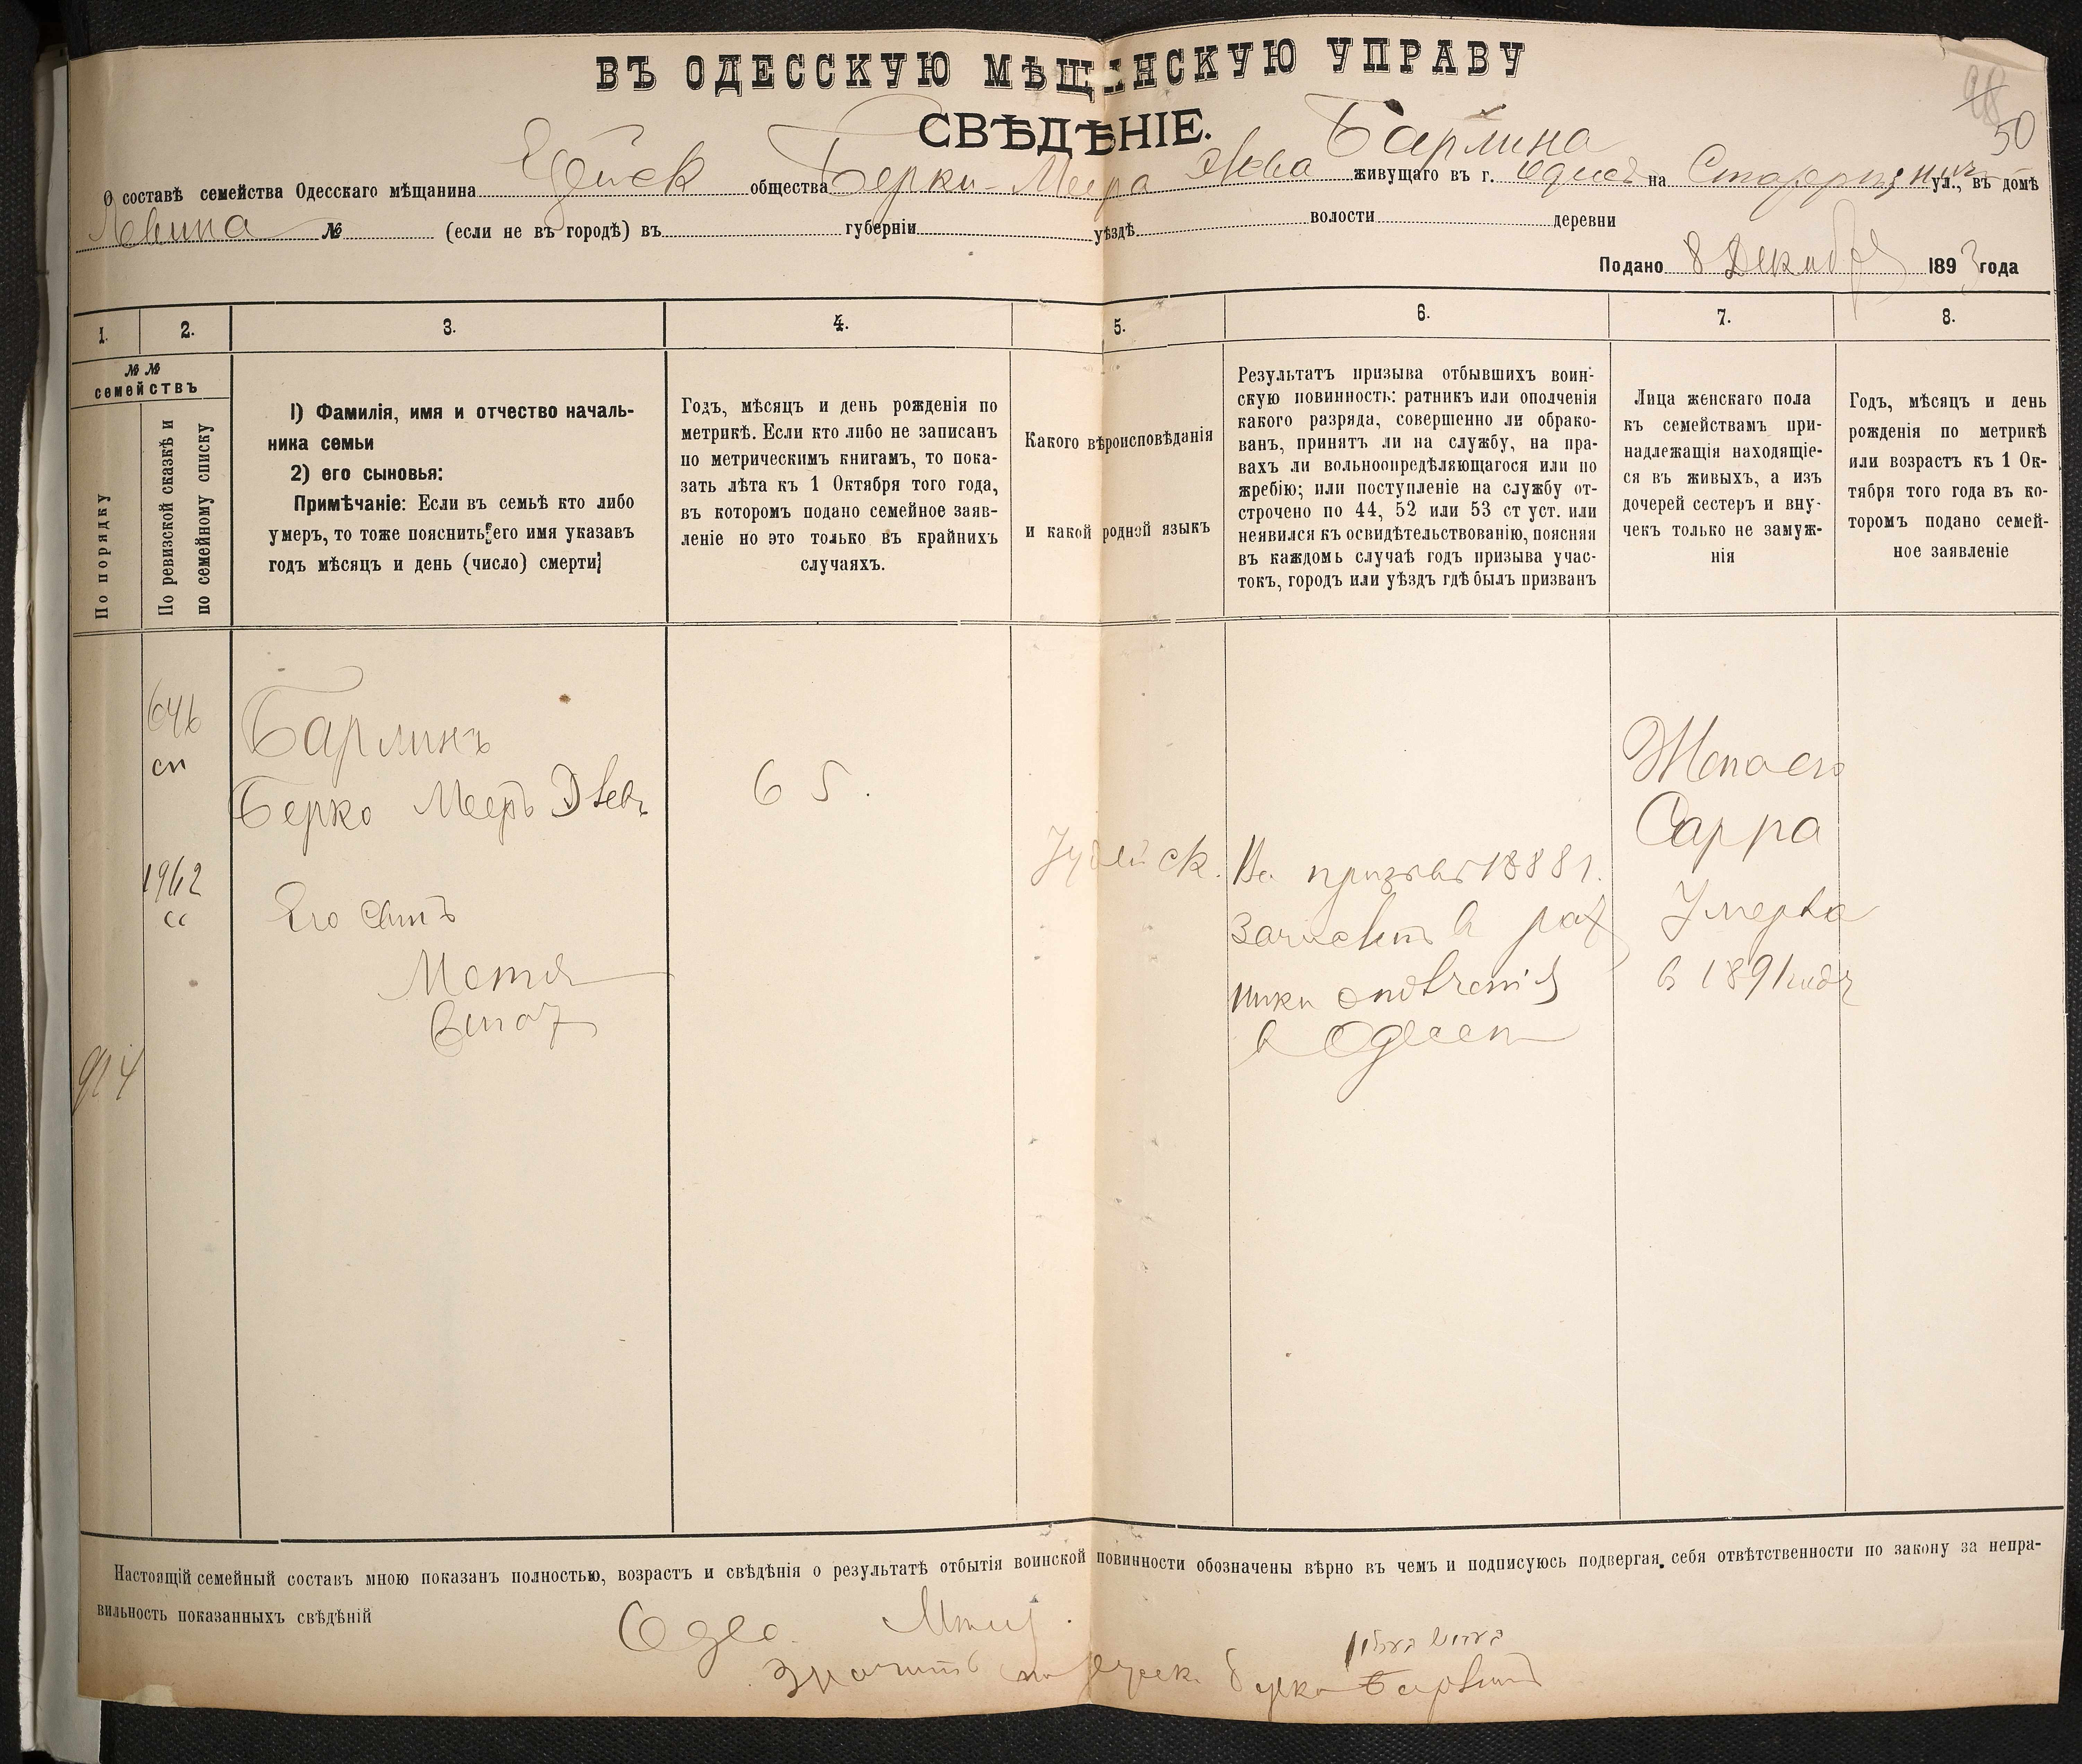 ВЪ ОДЕССКУЮ МѢЩАНСКУЮ УПРАВУ
СВѢДѢНІЕ.
50
О составѣ семейства Одесскаго мѣщанина общества Берки-Меера Барлина живущаго въ г. Одессѣ на ул., въ домѣ
Левина № (если не въ городѣ) въ губерніи уѣздѣ волости деревни
Подано 8 Декабря 1893 года
1. 2. 3. 4. 5. 6. 7. 8.
№ №
семействъ
По порядку
По ревизской сказкѣ и
по семейному списку
1) Фамилія, имя и отчество началь-
ника семьи
2) его сыновья:
Примѣчаніе: Если въ семьѣ кто либо
умеръ, то тоже пояснить его имя указавъ
годъ мѣсяцъ и день (число) смерти;
Годъ, мѣсяцъ и день рожденія по
метрикѣ. Если кто либо не записанъ
по метрическимъ книгамъ, то пока-
зать лѣта къ 1 Октября того года,
въ которомъ подано семейное заяв-
леніе но это только въ крайнихъ
случаяхъ.
Какого вѣроисповѣданія
и какой родной языкъ
Результатъ призыва отбывшихъ воин-
скую повинность: ратникъ или ополченія
какого разряда, совершенно ли обрако-
ванъ, принятъ ли на службу, на пра-
вахъ ли вольноопредѣляющагося или по
жребію; или поступленіе на службу от-
строчено по 44, 52 или 53 ст уст. или
неявился къ освидѣтельствованію, поясняя
въ каждомь случаѣ годъ призыва учас-
токъ, городъ или уѣздъ гдѣ былъ призванъ
Лица женскаго пола
къ семействамъ при-
надлежащія находящіе-
ся въ живыхъ, а изъ
дочерей сестеръ и вну-
чекъ только не замуж-
нія
Годъ, мѣсяцъ и день
рожденія по метрикѣ
или возрастъ къ 1 Ок-
тября того года въ ко-
торомъ подано семей-
ное заявленіе
646
сп
Барлинъ
Берко Мееръ
65.
1962
сс
Его сынъ
Мотя
Іудейск.
Въ призывъ 1888 г.
зачисленъ в рат
ники ополченія
в Одессѣ
Жена его
Сарра
Умерла
в 1891 году
914
Настоящій семейный составъ мною показанъ полностью, возрастъ и свѣдѣнія о результатѣ отбытія воинской повинности обозначены вѣрно въ чемъ и подписуюсь подвергая себя отвѣтственности по закону за непра-
вильность показанныхъ свѣдѣній
Одес.
значитъ Берко